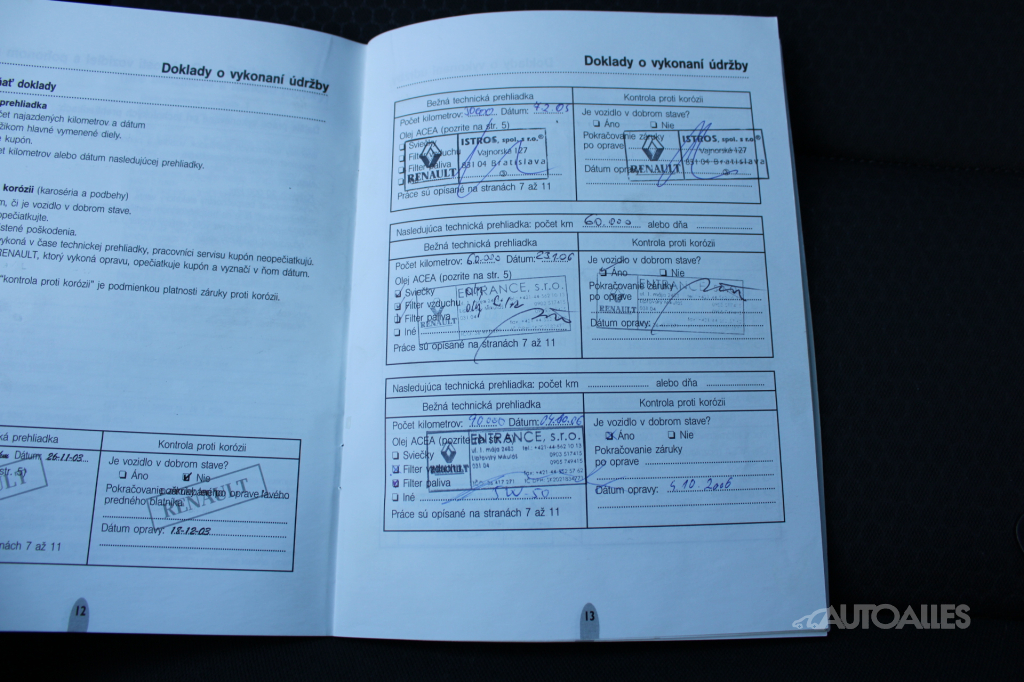 Doklady o vykonaní údržby
ať doklady
prehliadka
čet najazdených kilometrov a dátum
žíkom hlavné vymenené diely.
kupón.
t kilometrov alebo dátum nasledujúcej prehliadky.
korózii (karoséria a podbehy)
m, či je vozidlo v dobrom stave.
opečiatkujte.
stené poškodenia.
vykoná v čase technickej prehliadky, pracovníci servisu kupón neopečiatkujú.
RENAULT, ktorý vykoná opravu, opečiatkuje kupón a vyznačí v ňom dátum.
"kontrola proti korózii" je podmienkou platnosti záruky proti korózii.
ká prehliadka
Dátum: 26-11-03
str. 5)
nách 7 až 11
Kontrola proti korózii
Je vozidlo v dobrom stave?
Áno Nie
Pokračovanie oprave ľavého
predného blatníka
RENAULT
Dátum opravy: 18-12-03
12
Doklady o vykonaní údržby
Bežná technická prehliadka
Počet kilometrov: Dátum: 7.2.05
Olej ACEA (pozrite na str. 5)
Sviečky
Filter vzduchu
Filter paliva
RENAULT
ISTROS, spol. s r.o.
Vajnorská 127
831 04 Bratislava
Práce sú opísané na stranách 7 až 11
Kontrola proti korózii
Je vozidlo v dobrom stave?
Áno Nie
Pokračovanie záruky
po oprave
Dátum opravy
RENAULT
ISTROS, spol. s r.o.
Vajnorská 127
831 04 Bratislava
Nasledujúca technická prehliadka: počet km 60.000 alebo dňa
Bežná technická prehliadka
Počet kilometrov: 60.000 Dátum: 23.1.06
Olej ACEA (pozrite na str. 5)
Sviečky
Filter vzduchu
Filter paliva
Iné
RENAULT
ENTRANCE, s.r.o.
Práce sú opísané na stranách 7 až 11
Kontrola proti korózii
Je vozidlo v dobrom stave?
Áno Nie
Pokračovanie záruky
po oprave
RENAULT
ENTRANCE, s.r.o.
Dátum opravy:
Nasledujúca technická prehliadka: počet km alebo dňa
Bežná technická prehliadka
Počet kilometrov: 90.000 Dátum: 04.10.06
Olej ACEA (pozrite na str. 5)
Sviečky
Filter
Filter paliva
Iné 5W-50
RENAULT
ENTRANCE, s.r.o.
ul. 1. mája 2682
Liptovský Mikuláš
031 04
Práce sú opísané na stranách 7 až 11
Kontrola proti korózii
Je vozidlo v dobrom stave?
Áno Nie
Pokračovanie záruky
po oprave
Dátum opravy: 4.10 2006
13
AUTOALLES